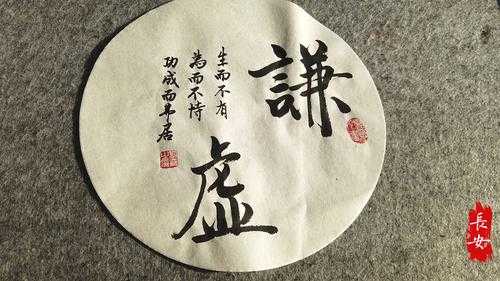 謙虚
生而不有
為而不恃
功成而弗居
長安